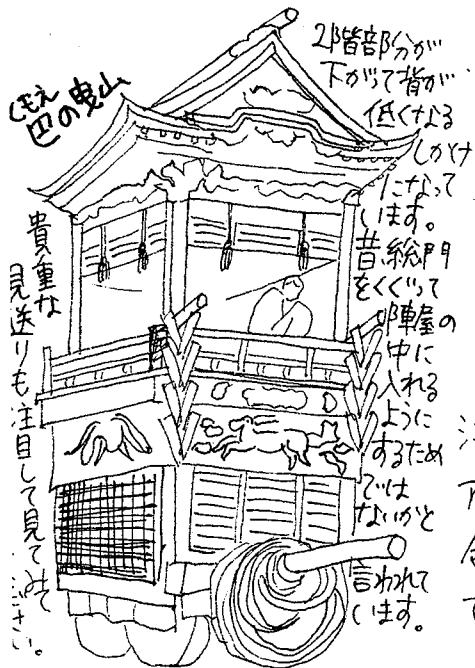 ともえ
巴の曳山
2階部分が
下がって背が
低くなる
しかけ
になって
います。
昔、総門
をくぐって
陣屋の
中に
入れる
ように
するため
では
ないかと
言われて
います。
貴重な
見送りも注目して見てみて
ださい。